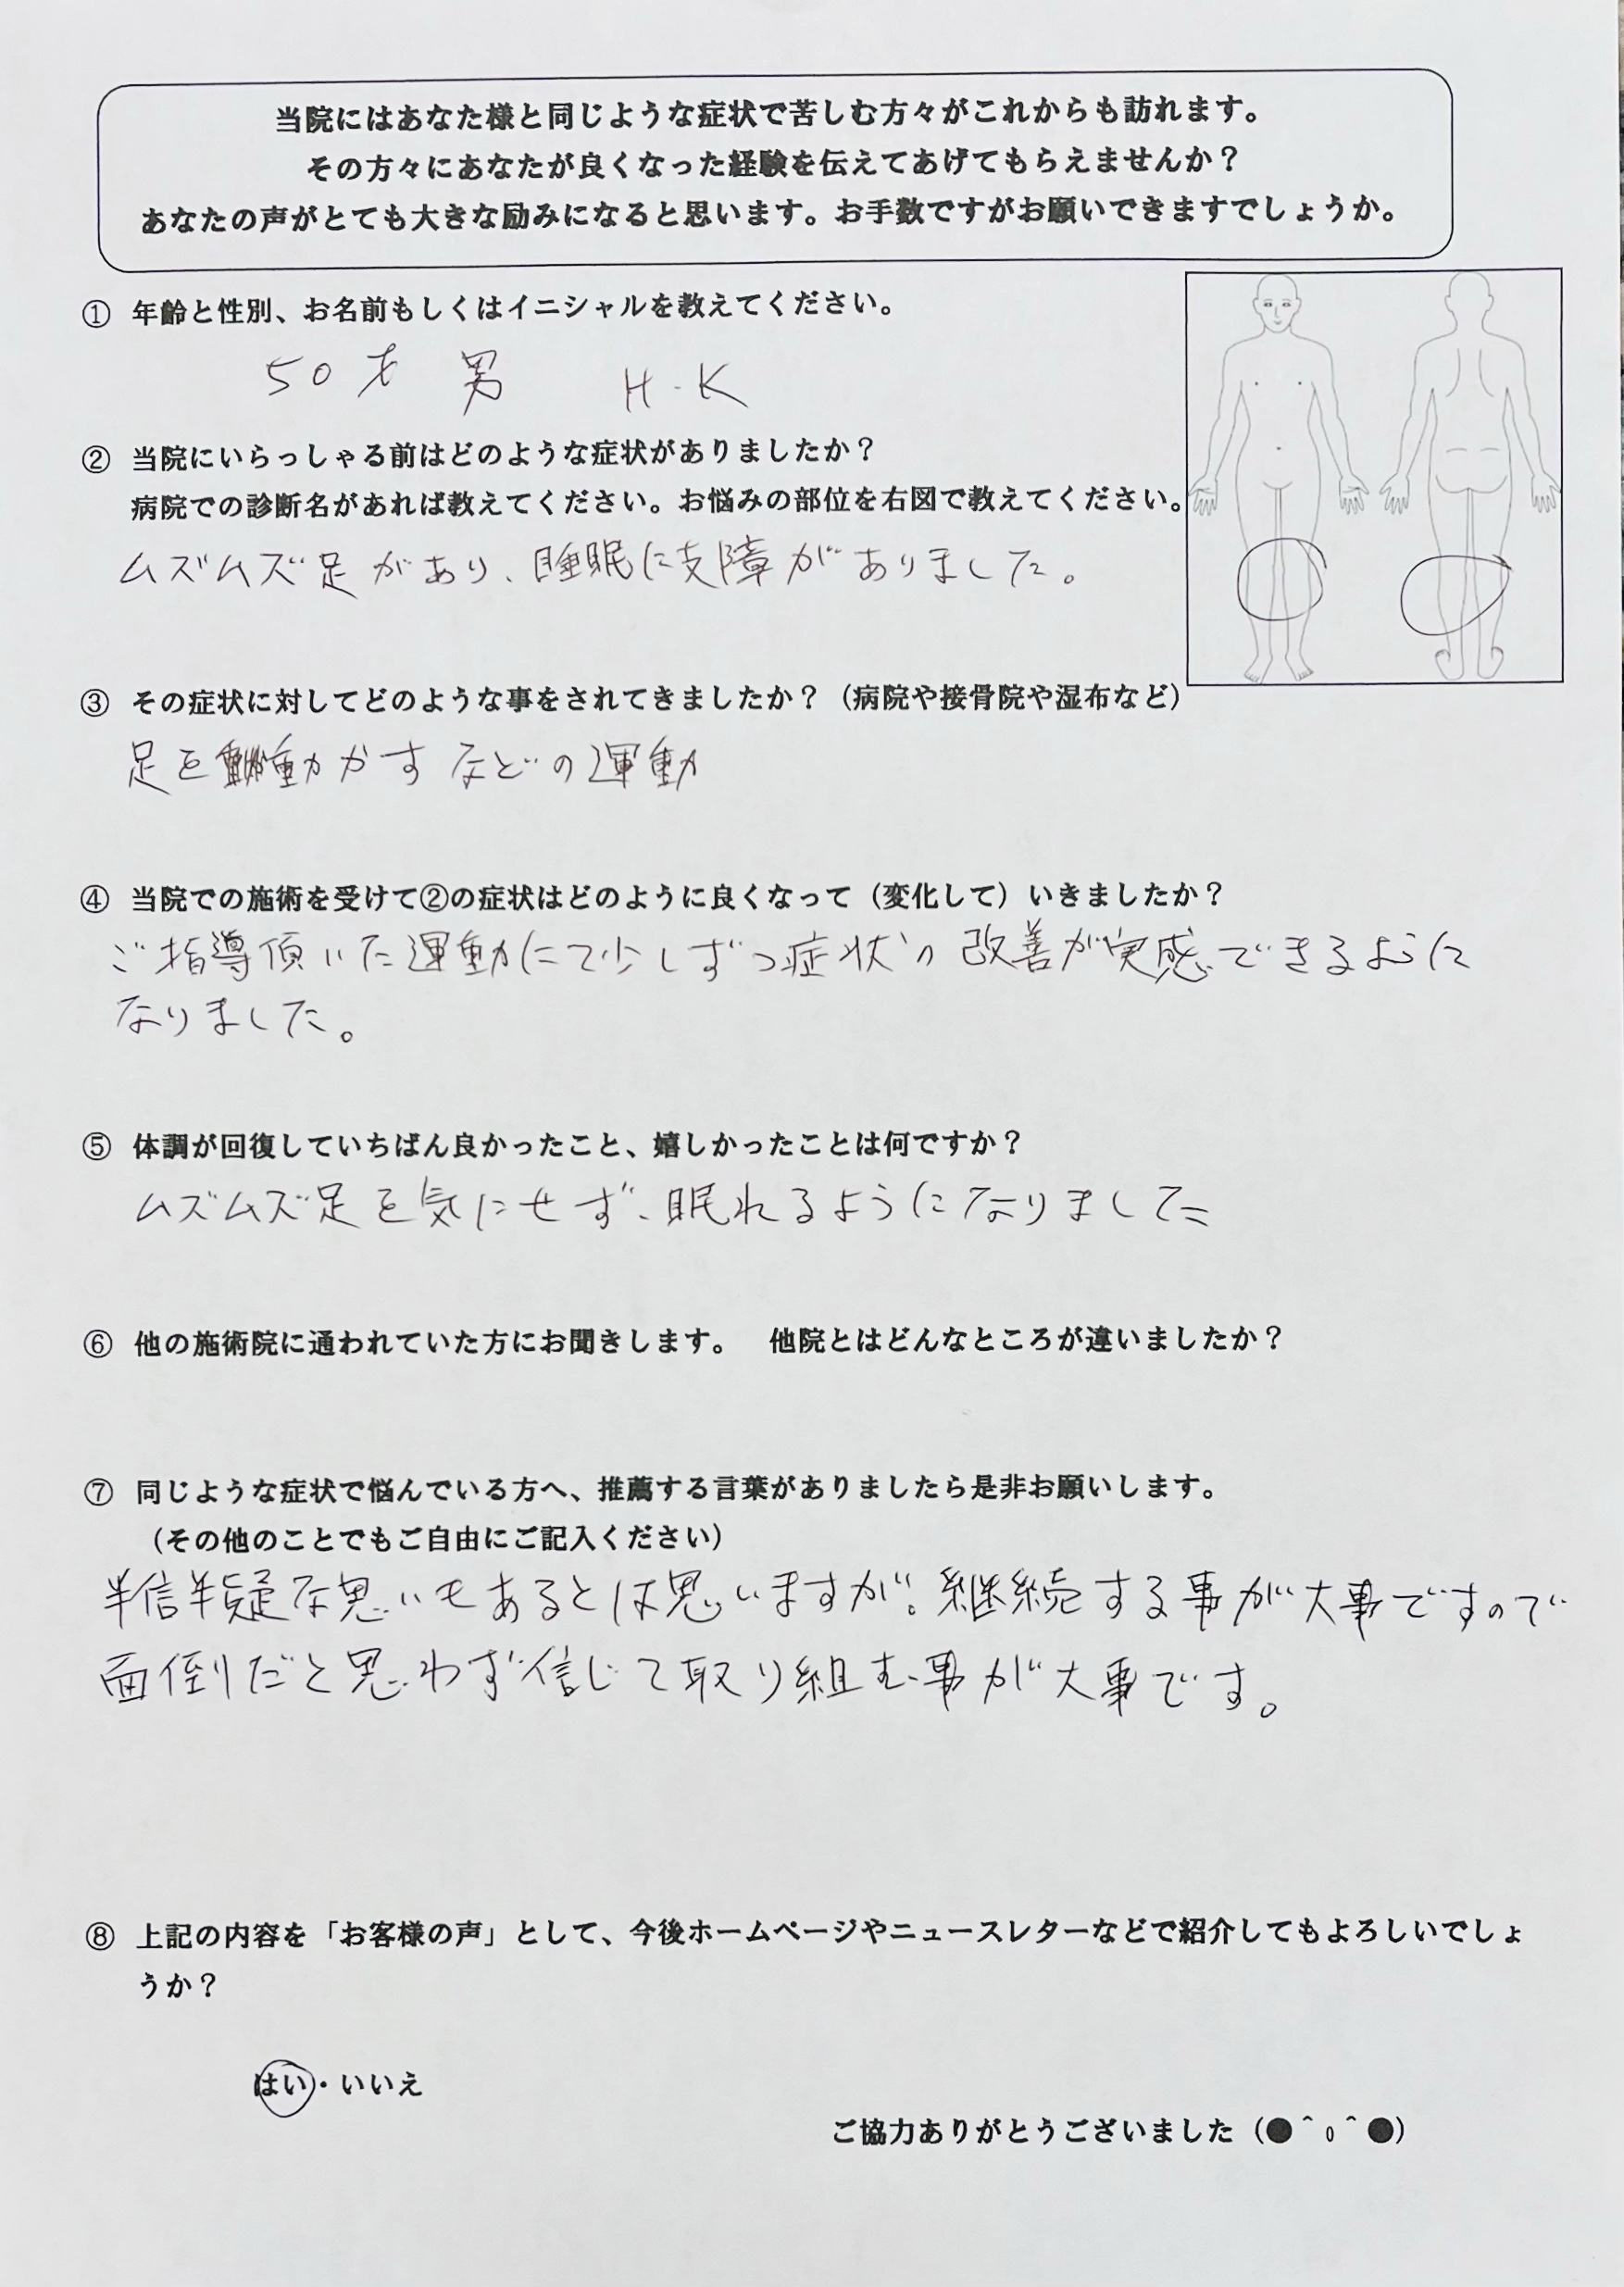 当院にはあなた様と同じような症状で苦しむ方々がこれからも訪れます。
その方々にあなたが良くなった経験を伝えてあげてもらえませんか？
あなたの声がとても大きな励みになると思います。お手数ですがお願いできますでしょうか。
① 年齢と性別、お名前もしくはイニシャルを教えてください。
50才 男 H.K
② 当院にいらっしゃる前はどのような症状がありましたか？
病院での診断名があれば教えてください。お悩みの部位を右図で教えてください。
ムズムズ足があり、睡眠に支障がありました。
③ その症状に対してどのような事をされてきましたか？（病院や接骨院や湿布など）
足を動かすなどの運動
④ 当院での施術を受けて②の症状はどのように良くなって（変化して）いきましたか？
ご指導頂いた運動にて少しずつ症状の改善が実感できるように
なりました。
⑤ 体調が回復していちばん良かったこと、嬉しかったことは何ですか？
ムズムズ足を気にせず、眠れるようになりました
⑥ 他の施術院に通われていた方にお聞きします。　他院とはどんなところが違いましたか？
⑦ 同じような症状で悩んでいる方へ、推薦する言葉がありましたら是非お願いします。
（その他のことでもご自由にご記入ください）
半信半疑な思いもあるとは思いますが。継続する事が大事ですので
面倒だと思わず信じて取り組む事が大事です。
⑧ 上記の内容を「お客様の声」として、今後ホームページやニュースレターなどで紹介してもよろしいでしょ
うか？
はい・いいえ
ご協力ありがとうございました（●＾０＾●）